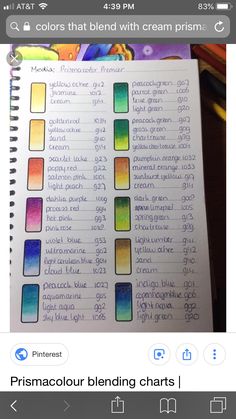 AT&T
4:39 PM
83%
colors that blend with cream prisma
Media: Prismacolor Premier
yellow ochre 942
jasmine
cream 914
goldenrod 1034
yellow ochre 942
sand
cream 914
scarlet lake 923
poppy red 922
salmon pink 1001
light peach 927
dahlia purple 1009
process red 994
hot pink 993
pink rose
violet blue 933
ultramarine 902
light cerulean blue 904
cloud blue 1023
peacock blue 1027
aquamarine 905
light aqua 992
sky light blue
peacock green 907
parrot green 1006
true green 910
light green 920
peacock green 907
grass green 909
chartreuse
yellow chartreuse
pumpkin orange 1032
mineral orange 1033
sunburst yellow 917
cream 914
dark green 908
spring green 913
chartreuse 989
light umber 941
yellow ochre 942
sand 940
cream 914
indigo blue 901
copenhagen blue 906
light aqua 992
light green 920
Pinterest
Prismacolour blending charts |